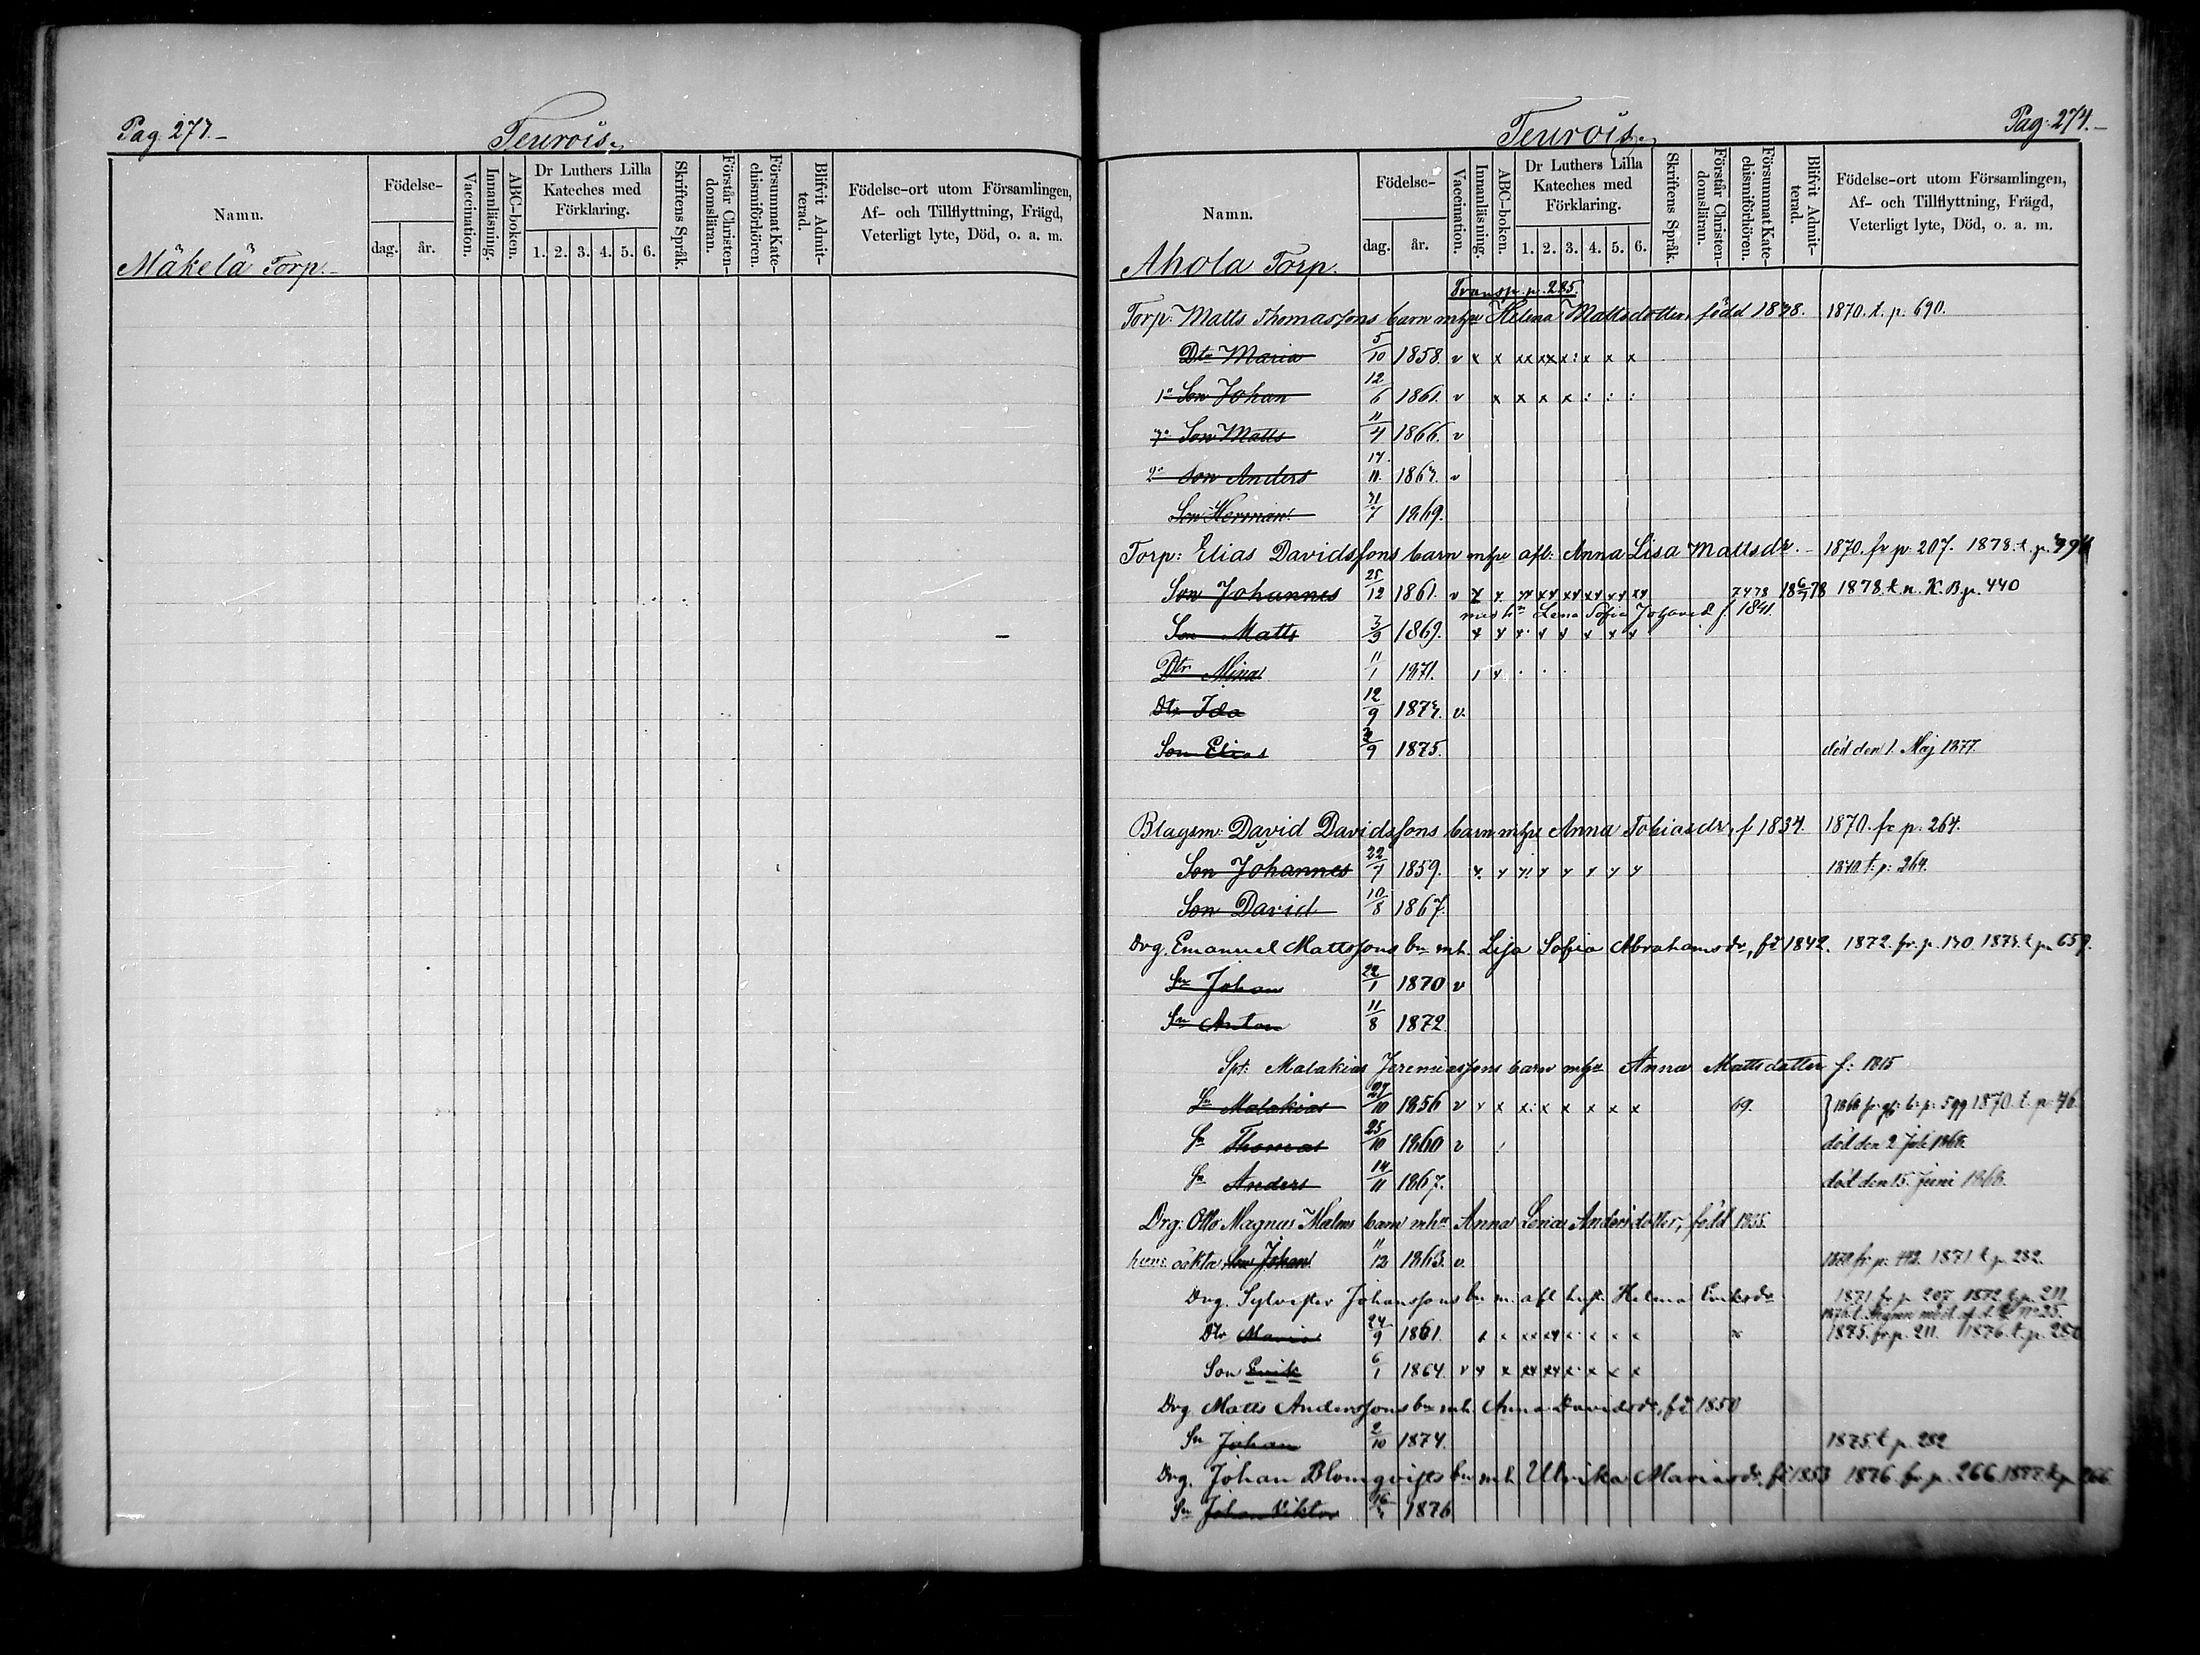 Pag. 273.
Teurois
Namn.
Födelse-
dag.
år.
Vaccination.
Innanläsning.
ABC-boken.
Dr Luthers Lilla Kateches med Förklaring.
1. 2. 3. 4. 5. 6.
Skriftens Språk.
Förstår Christen-domsläran.
Försummat Kate-chismiförhören.
Blifvit Admit-terad.
Födelse-ort utom Församlingen,
Af- och Tillflyttning, Frägd,
Veterligt lyte, Död, o. a. m.
Mäkelä Torp
Pag: 274.
Teurois
Namn.
Födelse-
dag.
år.
Vaccination.
Innanläsning.
ABC-boken.
Dr Luthers Lilla Kateches med Förklaring.
1. 2. 3. 4. 5. 6.
Skriftens Språk.
Förstår Christen-domsläran.
Försummat Kate-chismiförhören.
Blifvit Admit-terad.
Födelse-ort utom Församlingen,
Af- och Tillflyttning, Frägd,
Veterligt lyte, Död, o. a. m.
Ahola Torp.
Transp. p. 285.
Torp: Matts Thomassons barn mhu Helena Mattsdotter, född 1838. 1870. t. p. 690.
Dtr Maria 5/10 1858. v x x xx xx x: x x x
1° Son Johan 12/6 1861. v x x x x : : :
3° Son Matts 11/4 1866. v
2° Son Anders 17/11. 1863. v
Son Herman 31/7 1869.
Torp: Elias Davidssons barn mhu afl: Anna Lisa Mattsdr. 1870. fr p. 207. 1878. t. p.
Son Johannes 25/12 1861. v 1878. t. n. K. B. p. 440
med hu Lena Sofia f. 1841.
Son Matts 3/3 1869.
Dtr Mina 11/1 1871.
Dtr Ida 12/9 1873. v.
Son Elias /9 1875. död den 1. Maj 1877.
Blagsm: David Davidssons barn mhu Anna Tobiasdr, f 1834. 1870. fr p. 264.
Son Johannes 22/7 1859. 1870. t. p: 264.
Son David 10/8 1867.
Drg. Emanuel Mattssons bn mh. Lisa Sofia Abrahamsdr, fd 1842. 1872. fr. p. 170. 1873. t p. 659.
Sn Johan 22/1 1870 v
Sn Anton 11/8 1872.
Spt: Malakias Jeremiassons barn mhu Anna Mattsdotter f: 1815
Sn Malakias /10 1856 v x x x: x x x x x 69. 1870. t. p. 76.
Sn Thomas 25/10 1860 v död den 2 Juli 1868.
Sn Anders 14/11 1867. död den 15. Juni 1868.
Drg: Otto Magnus Malms barn mhu Anna Lena Andersdotter, född 1835.
hens oäkta Son Johan 11/12 1863. v. 1871 t. p. 282.
Drg. Sylvester Johanssons bn m. afl hust. Helena Eriksdr 1871 fr p. 207. 1872 t. p. 211.
Dtr Maria 24/9 1861. 1875. fr p. 211. 1876. t. p.
Son Erik 6/1 1864. v
Drg. Matts Anderssons bn mh. Anna Davidsdr, fd 1850
Sn Johan 2/10 1874. 1875. t. p. 282
Drg. Johan Blomqvists bn mh. Ulrika Mariasdr. fd 1853 1876. fr. p. 266. 1877. t. p. 266
Sn Johan Viktor 1876